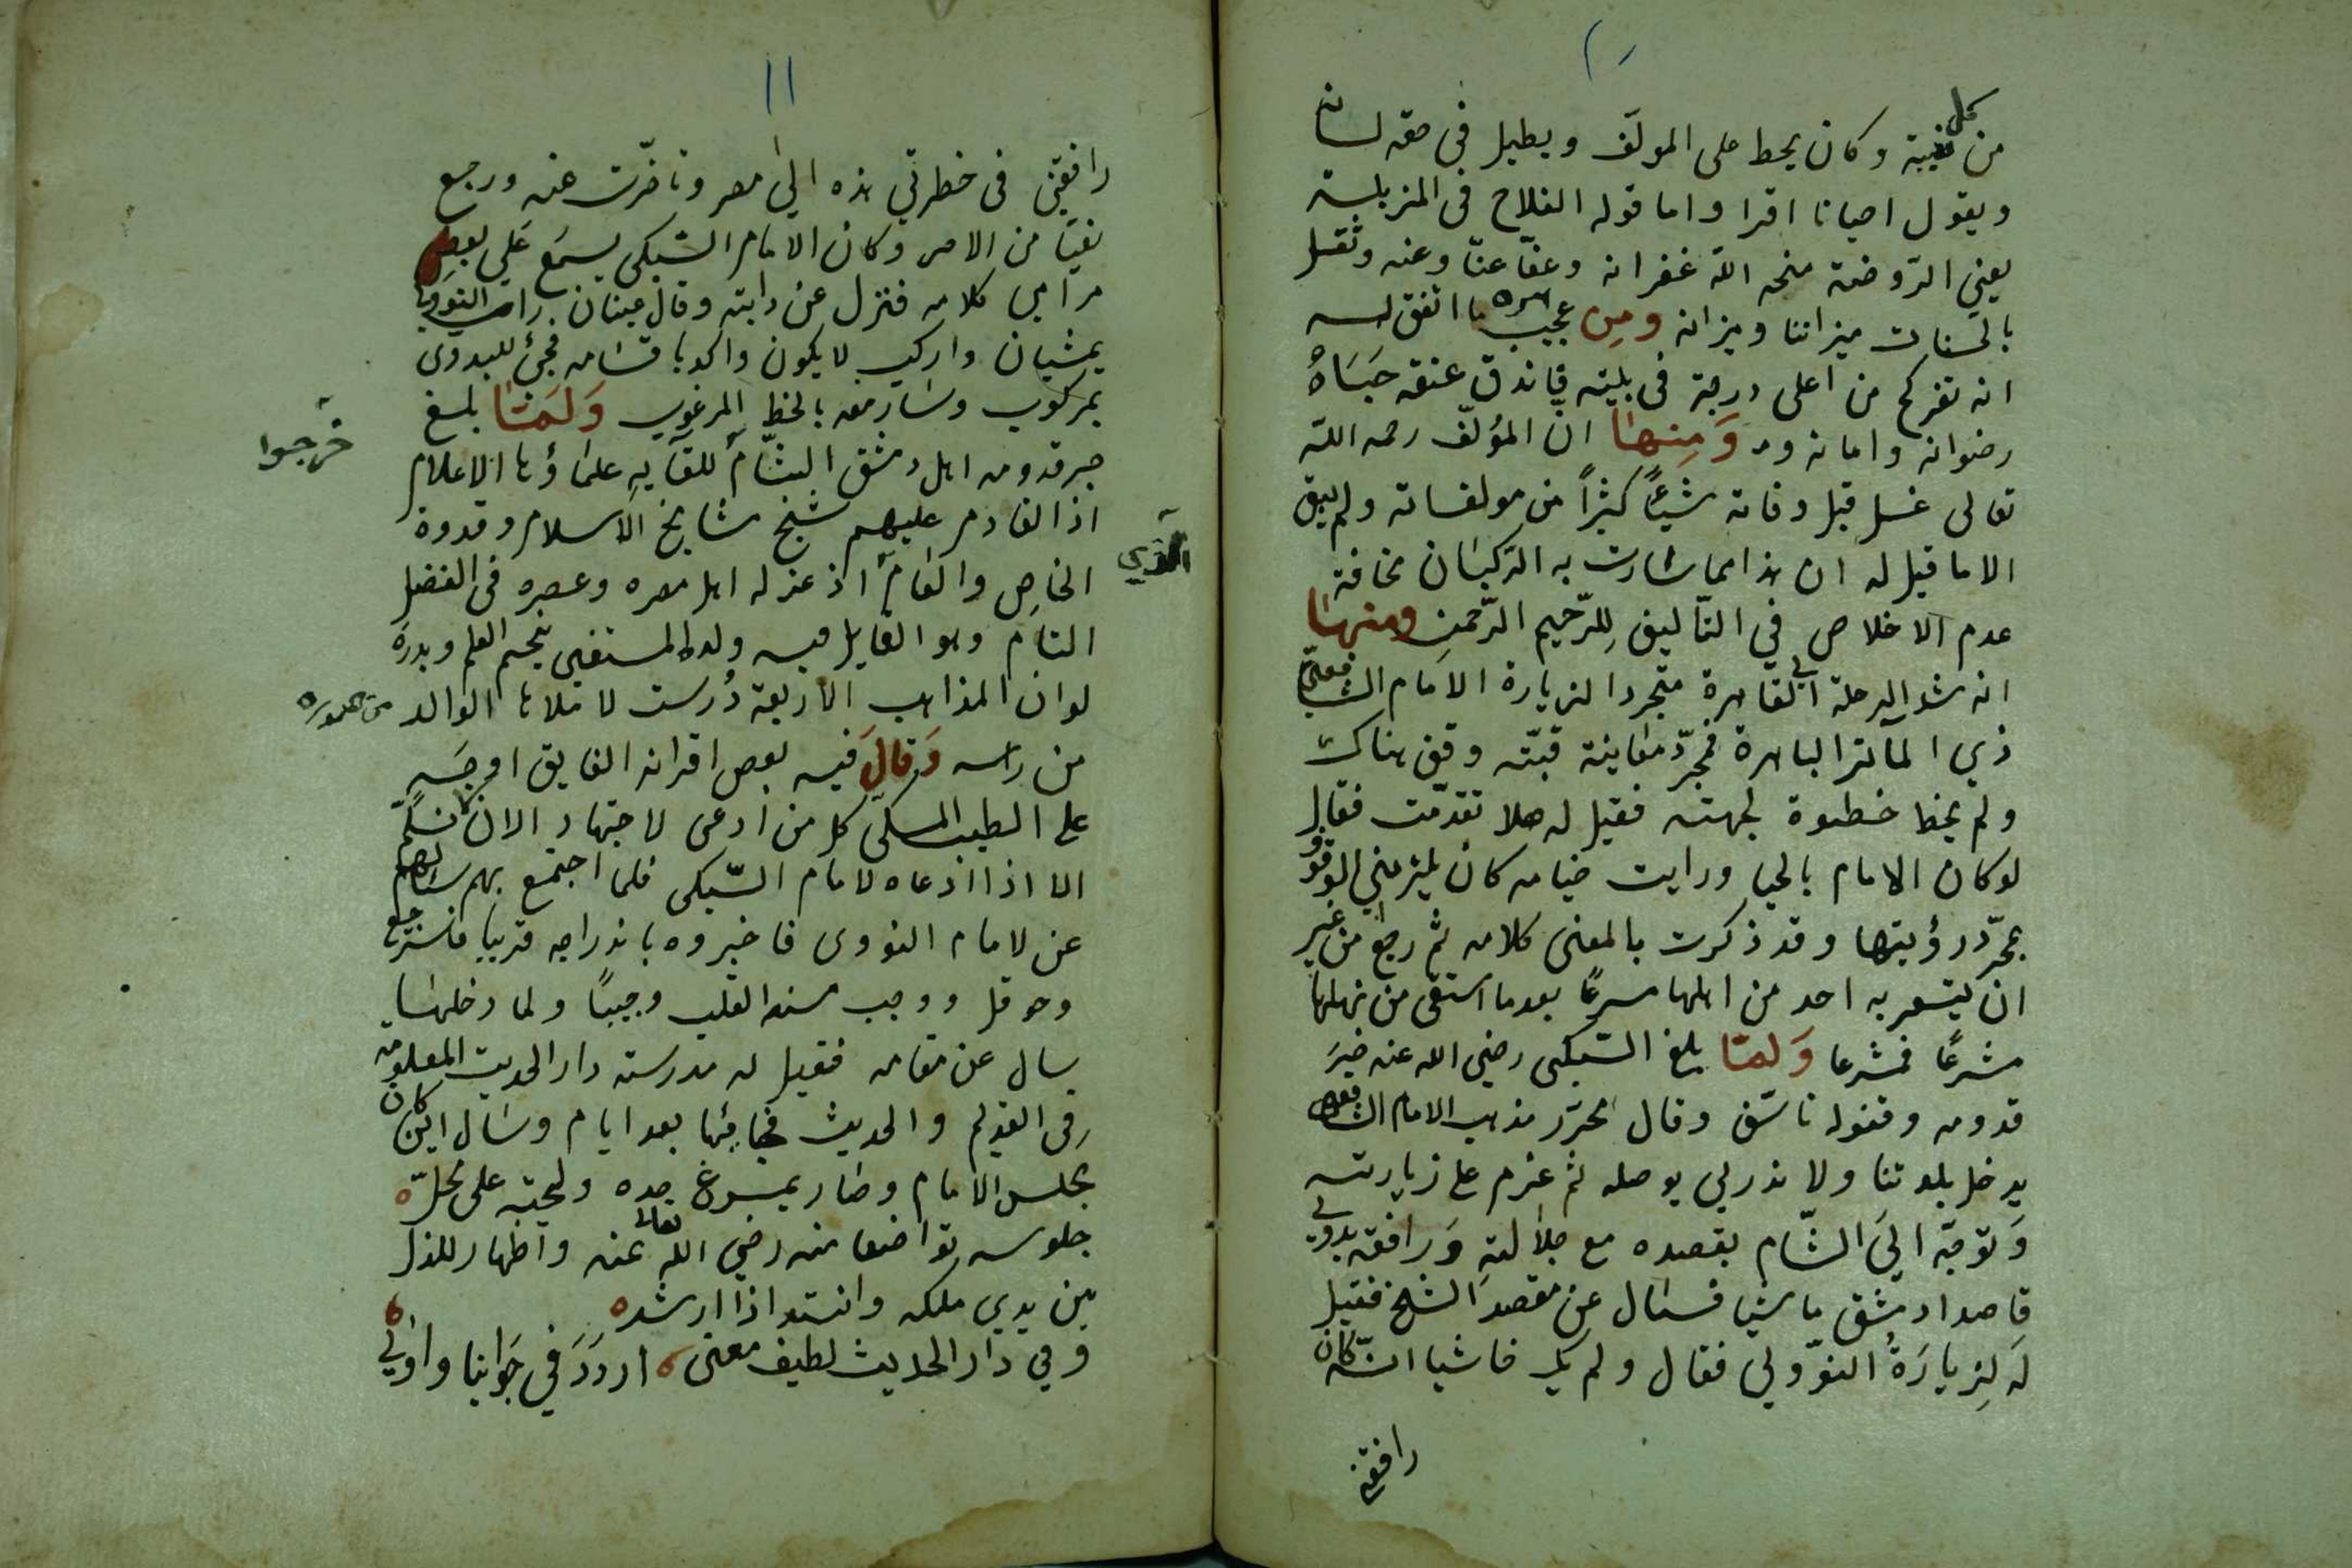 من كل غيبة وكان يحط على المولف ويطيل في حقه لسانه
ويقول احيانا اقرا واما قوله الفلاح فى المزبلة
يعني الرّوضة منحه الله غفرانه وعفا عنّا وعنه وثقل
بالحسنات ميزاننا وميزانه ومن عجيب ما اتفق له
انه تفركح من اعلى درجة فى بيته فاندق عنقه حباه
رضوانه وامانه ومنها انّ المؤلّف رحمه الله
تعالى غسل قبل وفاته شيئًا كثيرًا من مولفاته ولم يبق
الا ما قيل له ان هذا مما سارت به الركبان مخافة
عدم الاخلاص في التاليف للرّحيم الرّحمن ومنها
انه شد الرحلة الى القاهرة متجردا لزيارة الامام الشافعي
ذي المآثر الباهرة فمجرّد معاينة قبّته وقف هناك
ولم يخط خطوة لجهته فقيل له هلا تقدّمت فقال
لو كان الامام بالحيا ورايت خيامه كان يلزمني الوقوف
بمجرّد رؤيتها وقد ذكرت بالمعنى كلامه ثم رجع من غير
ان يشعر به احد من اهلها سرعًا بعدما استقى من نهلها
مشرعًا فمشرعا ولمّا بلغ السّبكى رضى الله عنه خبر
قدومه وقفوله تاسّف وقال محرّر مذهب الامام الشافعي
يدخل بلدتنا ولا ندري بوصله ثم عزم على زيارته
وتوجّه الى الشّام بقصده مع جلالته ورافقه بدوي
قاصدا دمشق ماشيا فسال عن مقصد الشيخ فقيل
له لزيارة النوّوي فقال ولم يك خاشيا انّه كان
رافقني
١١
رافقني فى خطرتي هذه الى مصر وتاخّرت عنه ورجع
نقيّا من الاصر وكان الامام السّبكى يسمع على بعض
مرامي كلامه فنزل عن دابته وقال عينان رات النووي
يمشيان واركب لا يكون واكد باقسامه فجئ للبدوى
بمركوب وسار معه بالحظ المرغوب ولمّا بلغ
خبر قدومه اهل دمشق الشام للقآيه علماؤها الاعلام
خرجوا
اذ القادم عليهم شيخ مشايخ الاسلام وقدوة
الخاص والعام اذعن له اهل مصره وعصره فى الفضل
الذي
التام وهو القايل فيه ولده المستضى بنجم العلم وبدره
لو ان المذاهب الاربعة درست لاملاها الوالد من صدره
من راسه وقال فيه بعض اقرانه الفايق اوجه
على الطيب المسكي كل من ادعى لاجتهاد الان لا نسلم
الا اذا ادعاه لامام السّبكى فلما اجتمع بهم سالهم
عن لامام النووى فاخبروه باندراجه قريبا فاسترجع
وحوقل ووجب منه القلب وجيبًا ولما دخلها
سال عن مقامه فقيل له مدرسته دار الحديث المعلومه
فى القديم والحديث فجائها بعد ايام وسال اين كان
يجلس الامام وصار يمرغ خده ولحيته على محلّ
جلوسه تواضعا منه رضي الله تعالى عنه واظهار للذل
بين يدي ملكه وانشد اذا ارشده
وفي دار الحديث لطيف معنى اردد في جوانبها واوي